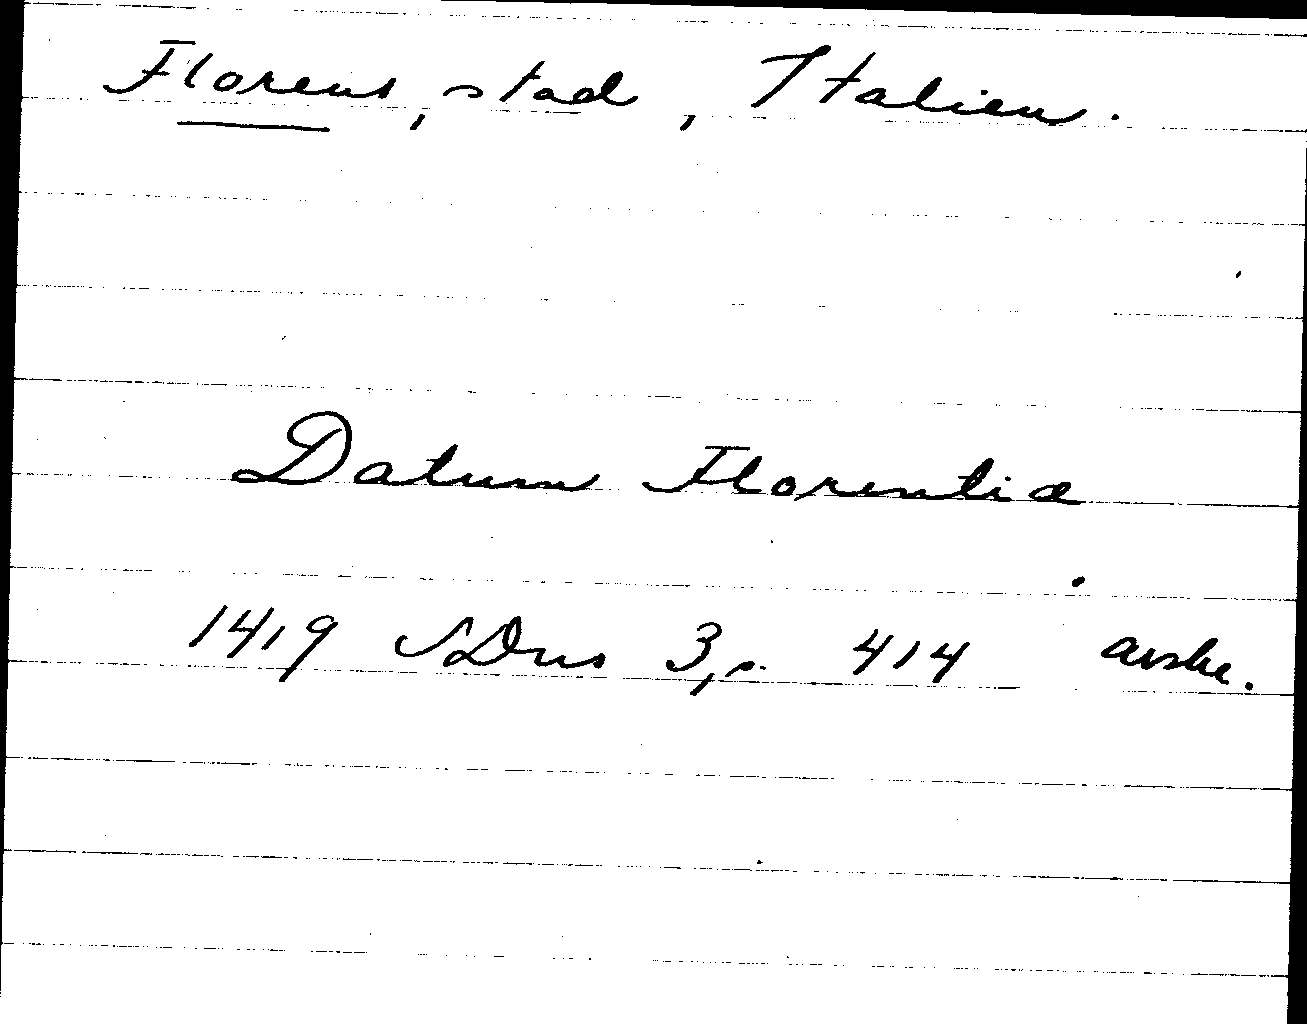 Florens, stad, Italien.
Datum Florentiæ
1419 SDns 3, s. 414 avskr.